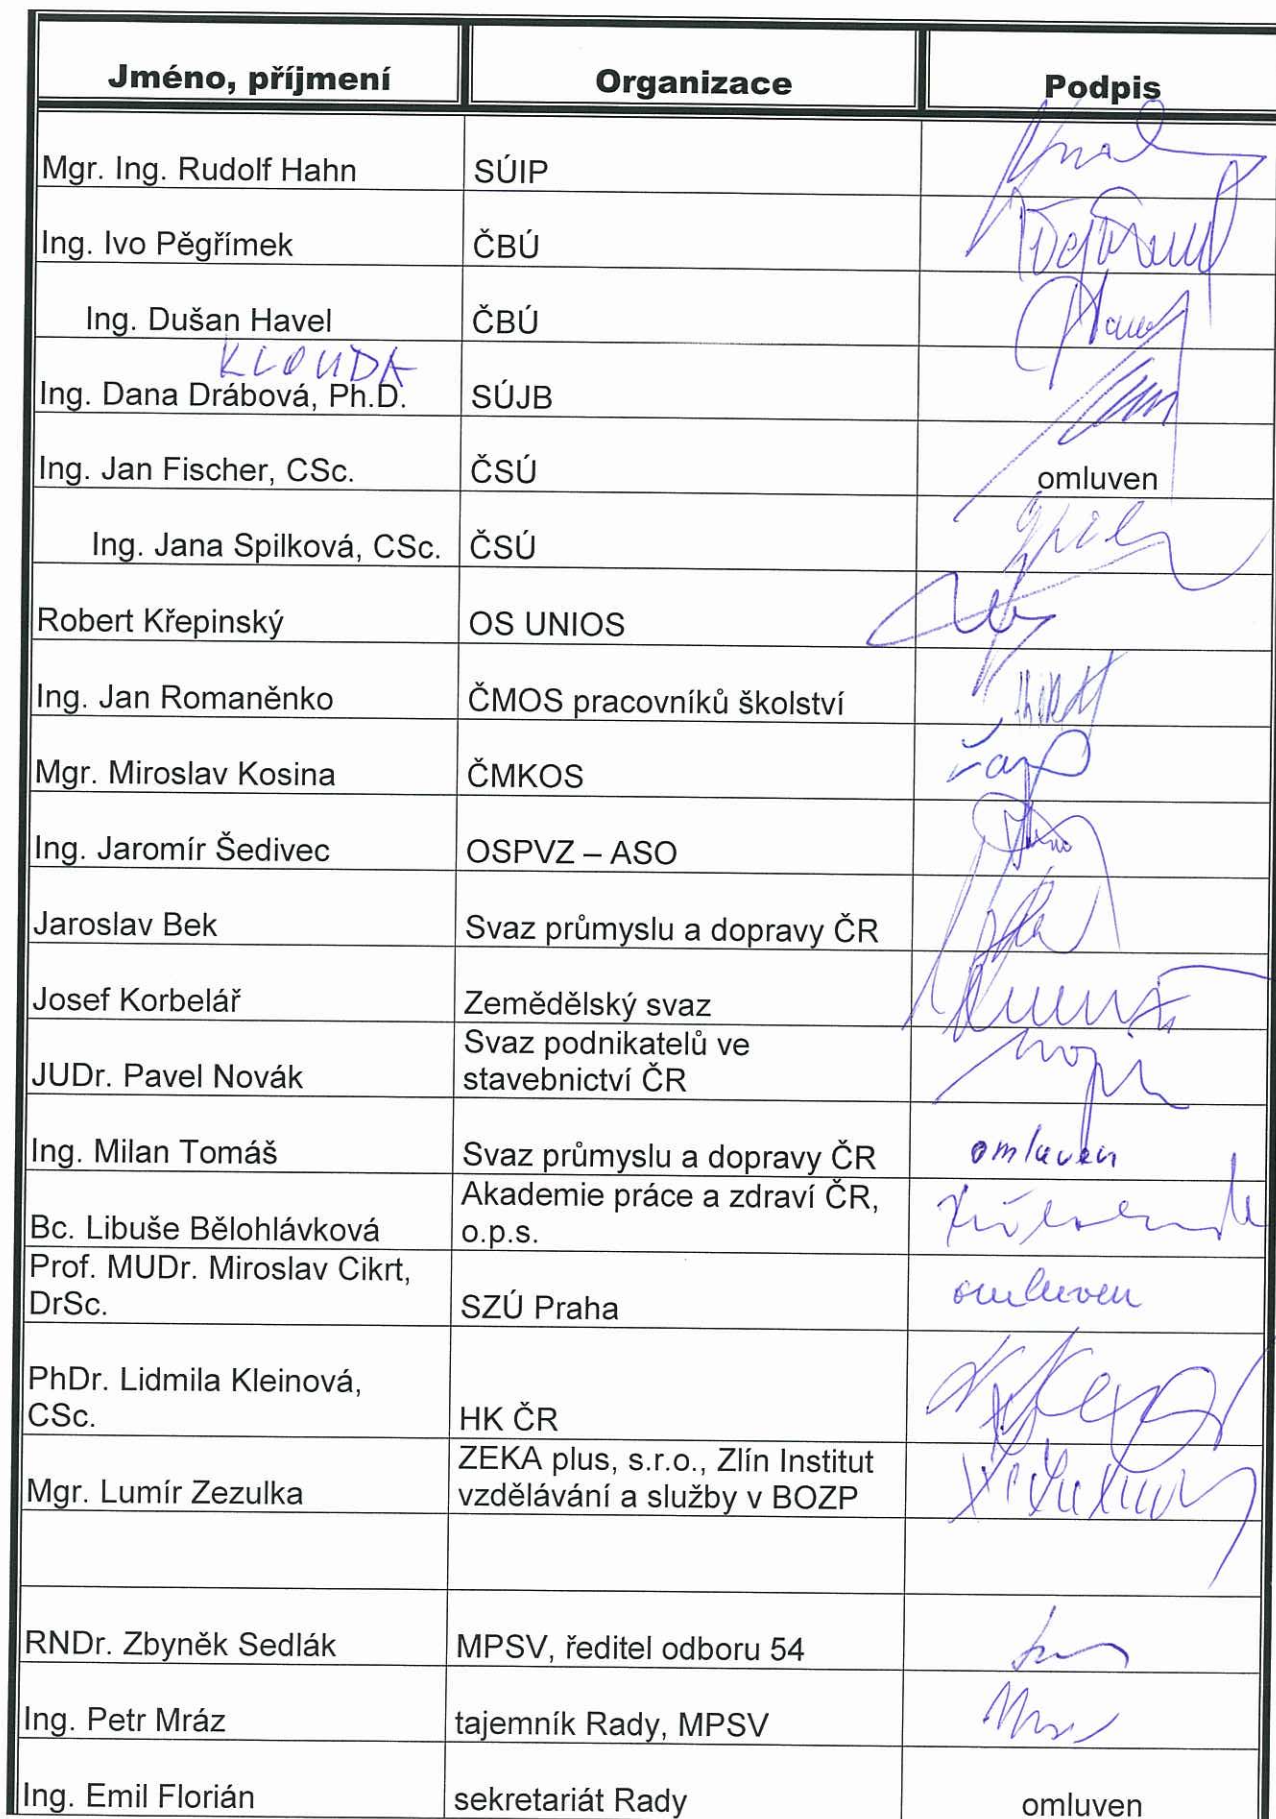 Jméno, příjmení Organizace Podpis
Mgr. Ing. Rudolf Hahn SÚIP
Ing. Ivo Pěgřímek ČBÚ
Ing. Dušan Havel ČBÚ
KLOUDA
Ing. Dana Drábová, Ph.D. SÚJB
Ing. Jan Fischer, CSc. ČSÚ omluven
Ing. Jana Spilková, CSc. ČSÚ
Robert Křepinský OS UNIOS
Ing. Jan Romaněnko ČMOS pracovníků školství
Mgr. Miroslav Kosina ČMKOS
Ing. Jaromír Šedivec OSPVZ – ASO
Jaroslav Bek Svaz průmyslu a dopravy ČR
Josef Korbelář Zemědělský svaz
Svaz podnikatelů ve
JUDr. Pavel Novák stavebnictví ČR
Ing. Milan Tomáš Svaz průmyslu a dopravy ČR omluven
Akademie práce a zdraví ČR,
Bc. Libuše Bělohlávková o.p.s.
Prof. MUDr. Miroslav Cikrt,
DrSc. SZÚ Praha omluven
PhDr. Lidmila Kleinová,
CSc. HK ČR
ZEKA plus, s.r.o., Zlín Institut
Mgr. Lumír Zezulka vzdělávání a služby v BOZP
RNDr. Zbyněk Sedlák MPSV, ředitel odboru 54
Ing. Petr Mráz tajemník Rady, MPSV
Ing. Emil Florián sekretariát Rady omluven